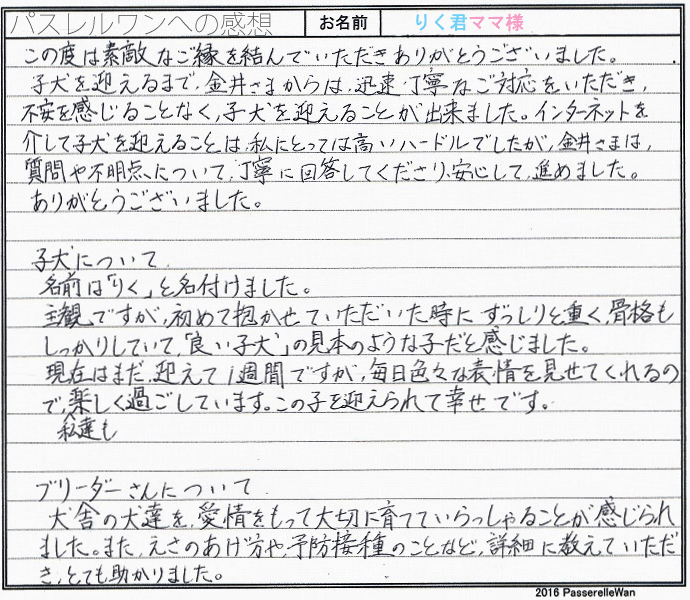 パスレルワンへの感想 お名前 りく君ママ様
この度は素敵なご縁を結んでいただきありがとうございました。
子犬を迎えるまで、金井さまからは、迅速・丁寧なご対応をいただき、
不安を感じることなく、子犬を迎えることが出来ました。インターネットを
介して子犬を迎えることは、私にとっては高いハードルでしたが、金井さまは、
質問や不明点について、丁寧に回答してくださり、安心して、進めました。
ありがとうございました。
子犬について
名前は「りく」と名付けました。
主観ですが、初めて抱かせていただいた時にずっしりと重く、骨格も
しっかりしていて、「良い子犬」の見本のような子だと感じました。
現在はまだ、迎えて1週間ですが、毎日色々な表情を見せてくれるの
で、楽しく過ごしています。この子を迎えられて幸せです。
私達も
ブリーダーさんについて
犬舎の犬達を、愛情をもって大切に育てていらっしゃることが感じられ
ました。また、えさのあげ方や、予防接種のことなど、詳細に教えていただ
き、とても助かりました。
2016 PasserelleWan